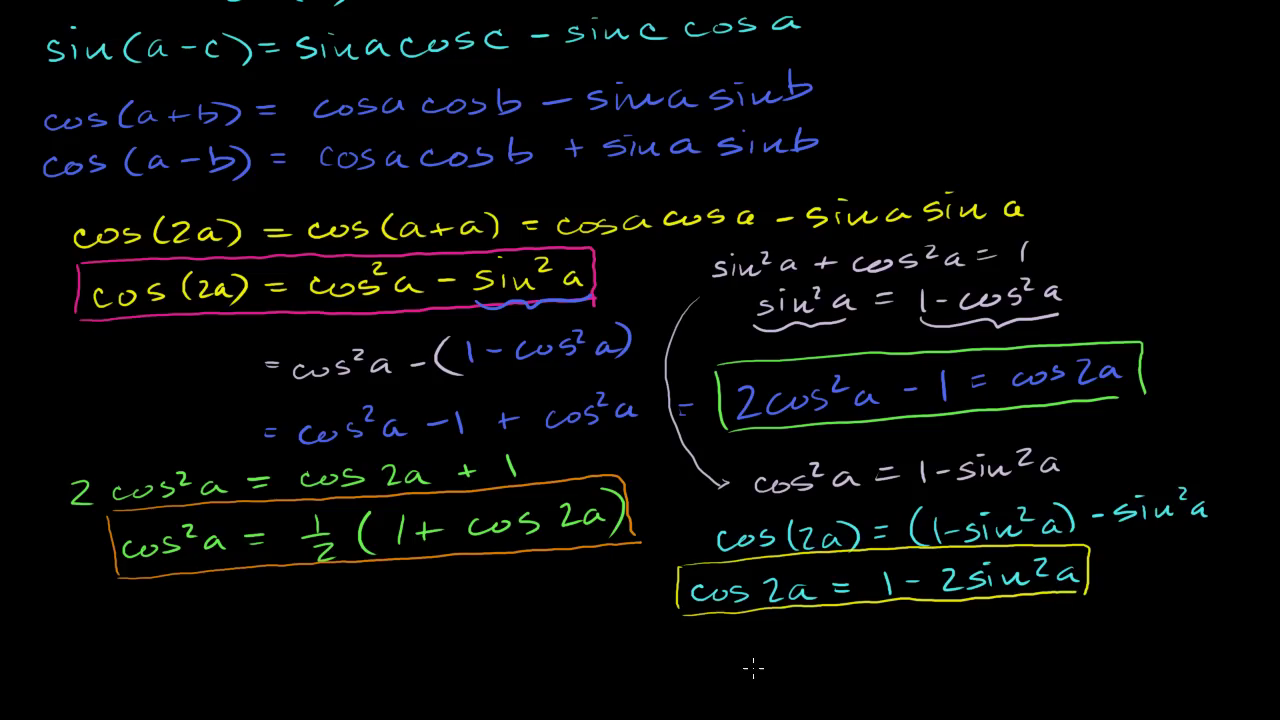 sin(a-c)= sinacosc - sinc cosa
cos(a+b)= cosa cosb - sina sinb
cos(a-b)= cosa cosb + sina sinb
cos(2a) = cos(a+a) = cosa cosa - sina sina
cos(2a) = cos²a - sin²a
= cos²a - (1-cos²a)
= cos²a - 1 + cos²a =
2 cos²a = cos 2a + 1
cos²a = ½ (1+ cos 2a)
sin²a + cos²a = 1
sin²a = 1-cos²a
2cos²a - 1 = cos2a
cos²a = 1-sin²a
cos(2a) = (1-sin²a) - sin²a
cos 2a = 1 - 2sin²a